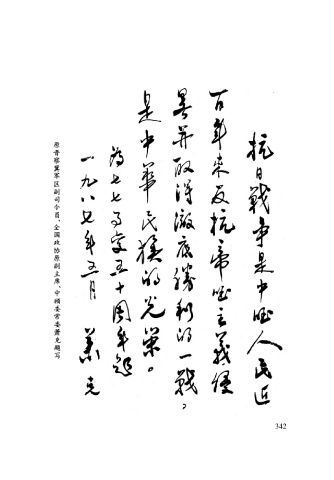 抗日战争是中国人民近
百年来反抗帝国主义侵
略并取得澈底胜利的一战，
是中华民族的光荣。
为七七事变五十周年题
一九八七年五月 萧克
原晋察冀军区副司令员、全国政协原副主席、中顾委常委萧克题写
342